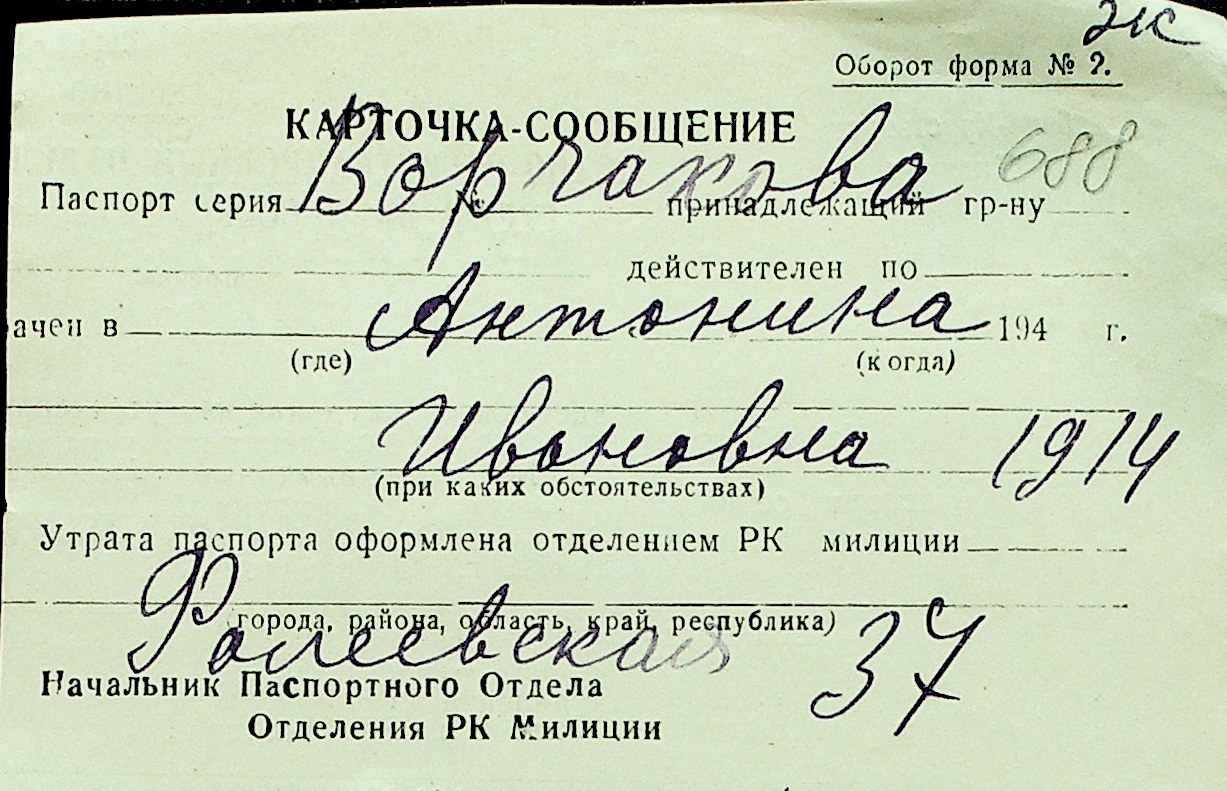 эк
Оборот форма № 2.
КАРТОЧКА-СООБЩЕНИЕ
688
Ворчакова
Паспорт серия № принадлежащий гр-ну
действителен по
Антонина
ачен в 194 г.
(где) (когда)
Ивановна 1914
(при каких обстоятельствах)
Утрата паспорта оформлена отделением РК милиции
города, района, область, край, республика)
Фалеевская 37
Начальник Паспортного Отдела
Отделения РК Милиции